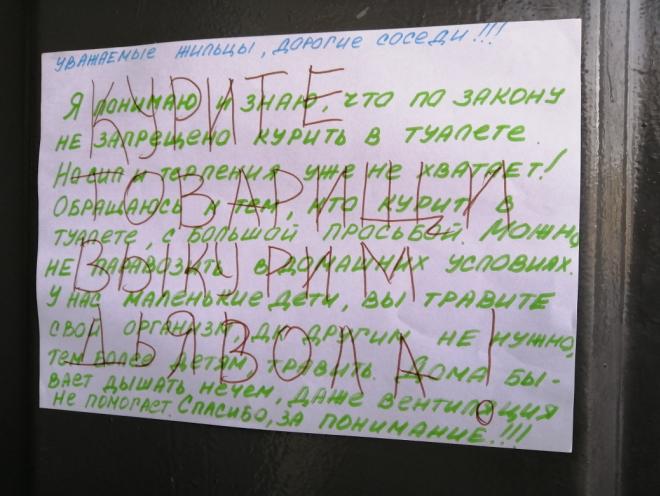 УВАЖАЕМЫЕ ЖИЛЬЦЫ, ДОРОГИЕ СОСЕДИ!!!
Я ПОНИМАЮ И ЗНАЮ, ЧТО ПО ЗАКОНУ
НЕ ЗАПРЕЩЕНО КУРИТЬ В ТУАЛЕТЕ.
НО СИЛ И ТЕРПЕНИЯ УЖЕ НЕ ХВАТАЕТ!
ОБРАЩАЮСЬ К ТЕМ, КТО КУРИТ В
ТУАЛЕТЕ, С БОЛЬШОЙ ПРОСЬБОЙ. МОЖНО
НЕ ПАРАВОЗИТЬ В ДОМАШНИХ УСЛОВИЯХ.
У НАС МАЛЕНЬКИЕ ДЕТИ, ВЫ ТРАВИТЕ
СВОЙ ОРГАНИЗМ, ДК ДРУГИМ НЕ НУЖНО,
ТЕМ БОЛЕЕ ДЕТЯМ, ТРАВИТЬ. ДОМА БЫ-
ВАЕТ ДЫШАТЬ НЕЧЕМ, ДАЖЕ ВЕНТИЛЯЦИЯ
НЕ ПОМОГАЕТ. СПАСИБО, ЗА ПОНИМАНИЕ.!!!
КУРИТЕ
ТОВАРИЩИ
ВЫКУРИМ
ДЬЯВОЛА!